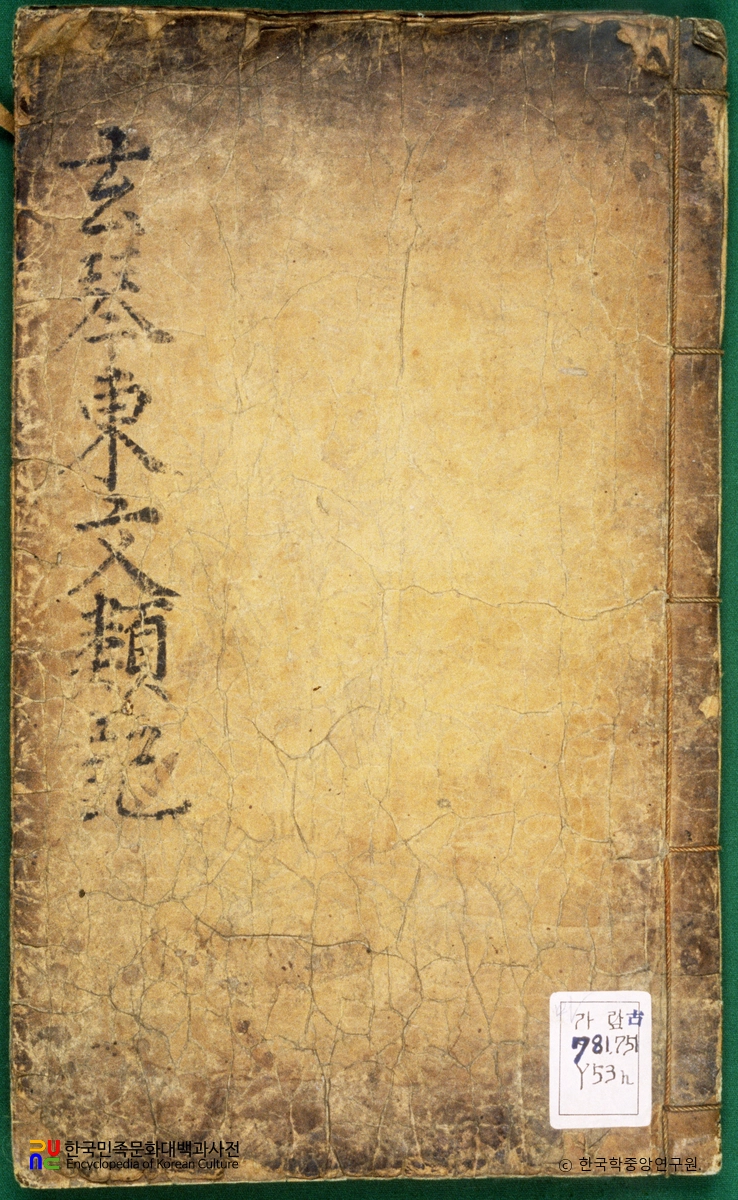 玄琴東文類記
가람古
781.751
Y53h
한국민족문화대백과사전
Encyclopedia of Korean Culture
© 한국학중앙연구원.